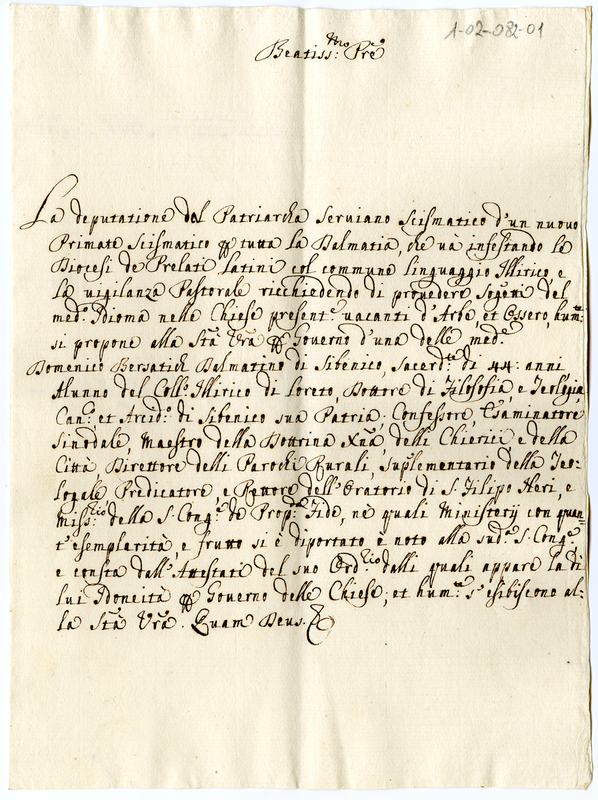 1-02-082-01
Beatiss:mo Pre
La deputatione del Patriarcha Serviano Scismatico d'un nuovo
Primate Scismatico p tutta la Dalmatia, che và infestando le
Diocesi de Prelati Latini col commune linguaggio Illirico, e
la vigilanza Pastorale ricchiedendo di provedere sogetti del
med:o Idioma nelle Chiese present:e vacanti d'Arbe, et Ossero, hum:e
si propone alla Stà Vrà p Governo d'una delle med:e
Domenico Bersatich Dalmatino di Sibenico, Sacerd:te di 44. anni,
Alunno del Coll:o Illirico di Loreto, Dottore di Filosofia, e Teologia
Can:co et Arcid:o di Sibenico sua Patria; Confessore, Esaminatore
Sinodale, Maestro della Dottrina Xna, delli Chierici e della
Città, Direttore delli Parochi Rurali, Suplementario della Teo-
logale Predicatore, e Rettore dell'Oratorio di S. Filipo Neri, e
Miss:rio della S. Cong:e de Prop:da Fide, nè quali Ministery con quan-
t'esemplarità, e frutto si è diportato è noto alla sud:a S. Cong:e
e consta dall'Attestati del suo Ord:rio dalli quali appare la di
lui Idoneità p Governo delle Chiese; et hum:te s'esibiscono al-
la Stà Vrà. Quam Deus.